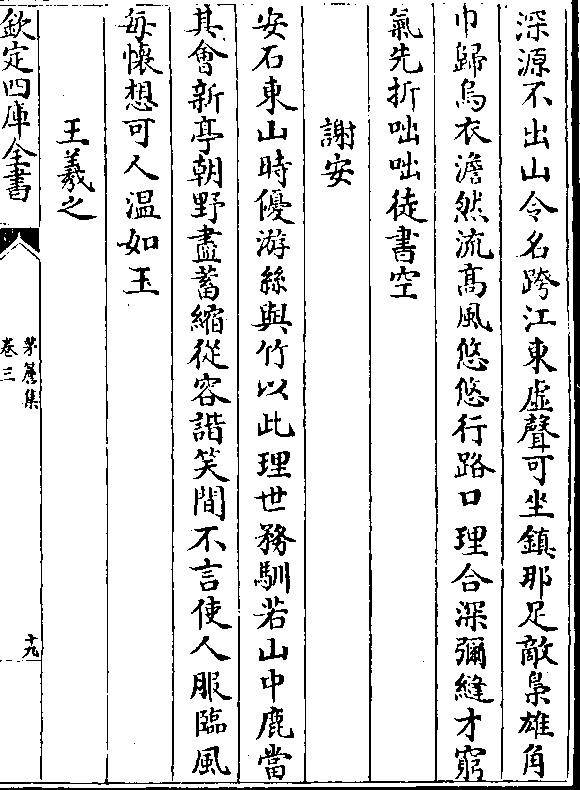 深源不出山令名跨江東虚聲可坐鎮那足敵梟雄角
巾歸烏衣澹然流髙風悠悠行路口理合深彌縫才窮
氣先折咄咄徒書空
謝安
安石東山時優游絲與竹以此理世務馴若山中鹿當
其會新亭朝野盡蓄縮從容諧笑間不言使人服臨風
每懷想可人温如玉
王羲之
欽定四庫全書
茅簷集
卷三
十九